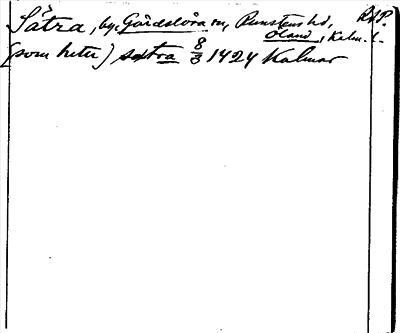 Sätra, by, Gårdslösa sn, Runstens hd, RAP.
Öland, Kalm. l.
(som heter) sætra 8/3 1424 Kalmar